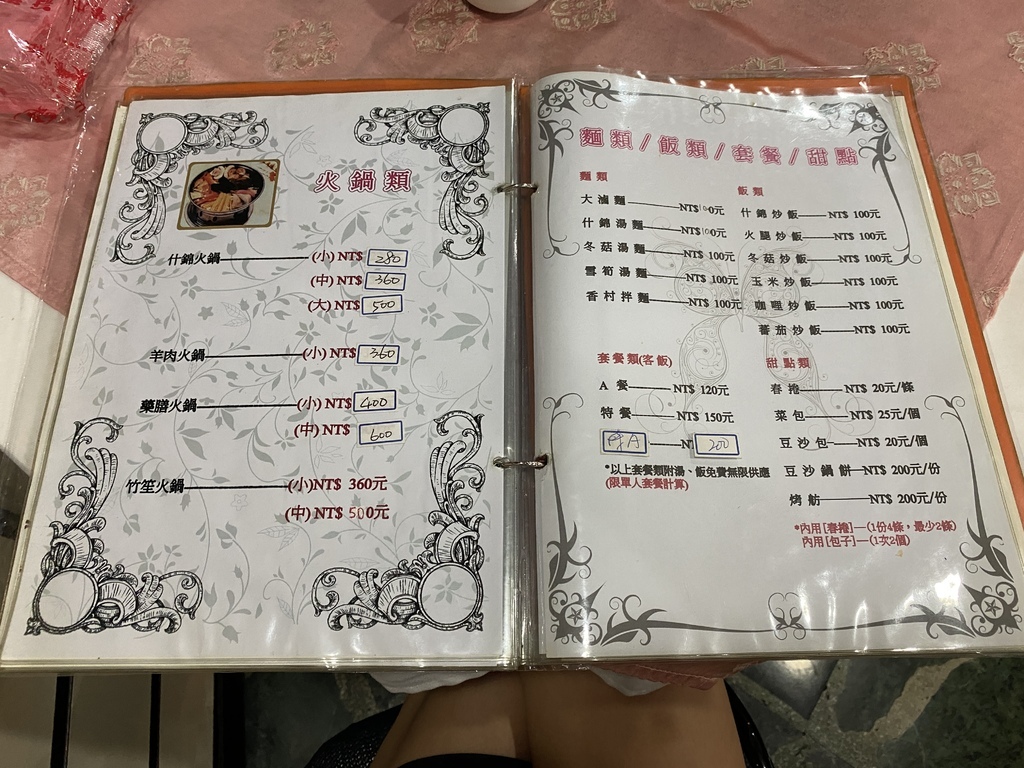 火鍋類
什錦火鍋 (小) NT$ 280
(中) NT$ 360
(大) NT$ 500
羊肉火鍋 (小) NT$ 360
藥膳火鍋 (小) NT$ 400
(中) NT$ 600
竹笙火鍋 (小)NT$ 360元
(中) NT$ 500元
麵類/飯類/套餐/甜點
麵類
大滷麵 NT$100元
什錦湯麵 NT$100元
冬菇湯麵 NT$ 100元
雪筍湯麵 NT$ 100元
香村拌麵 NT$ 100元
飯類
什錦炒飯 NT$ 100元
火腿炒飯 NT$ 100元
冬菇炒飯 NT$ 100元
玉米炒飯 NT$ 100元
咖哩炒飯 NT$ 100元
蕃茄炒飯 NT$ 100元
套餐類(客飯)
A 餐 NT$ 120元
特餐 NT$ 150元
特A N 200
*以上套餐類附湯、飯免費無限供應
(限單人套餐計算)
甜點類
春捲 NT$ 20元/條
菜包 NT$ 25元/個
豆沙包 NT$ 20元/個
豆沙鍋餅 NT$ 200元/份
烤舫 NT$ 200元/份
*內用[春捲]—(1份4條，最少2條)
內用[包子]—(1次2個)